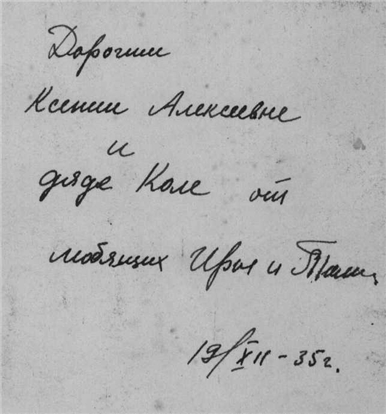 Дорогим
Ксении Алексеевне
и
дяде Коле от
любящих Иры и Тани
19/XII-35г.